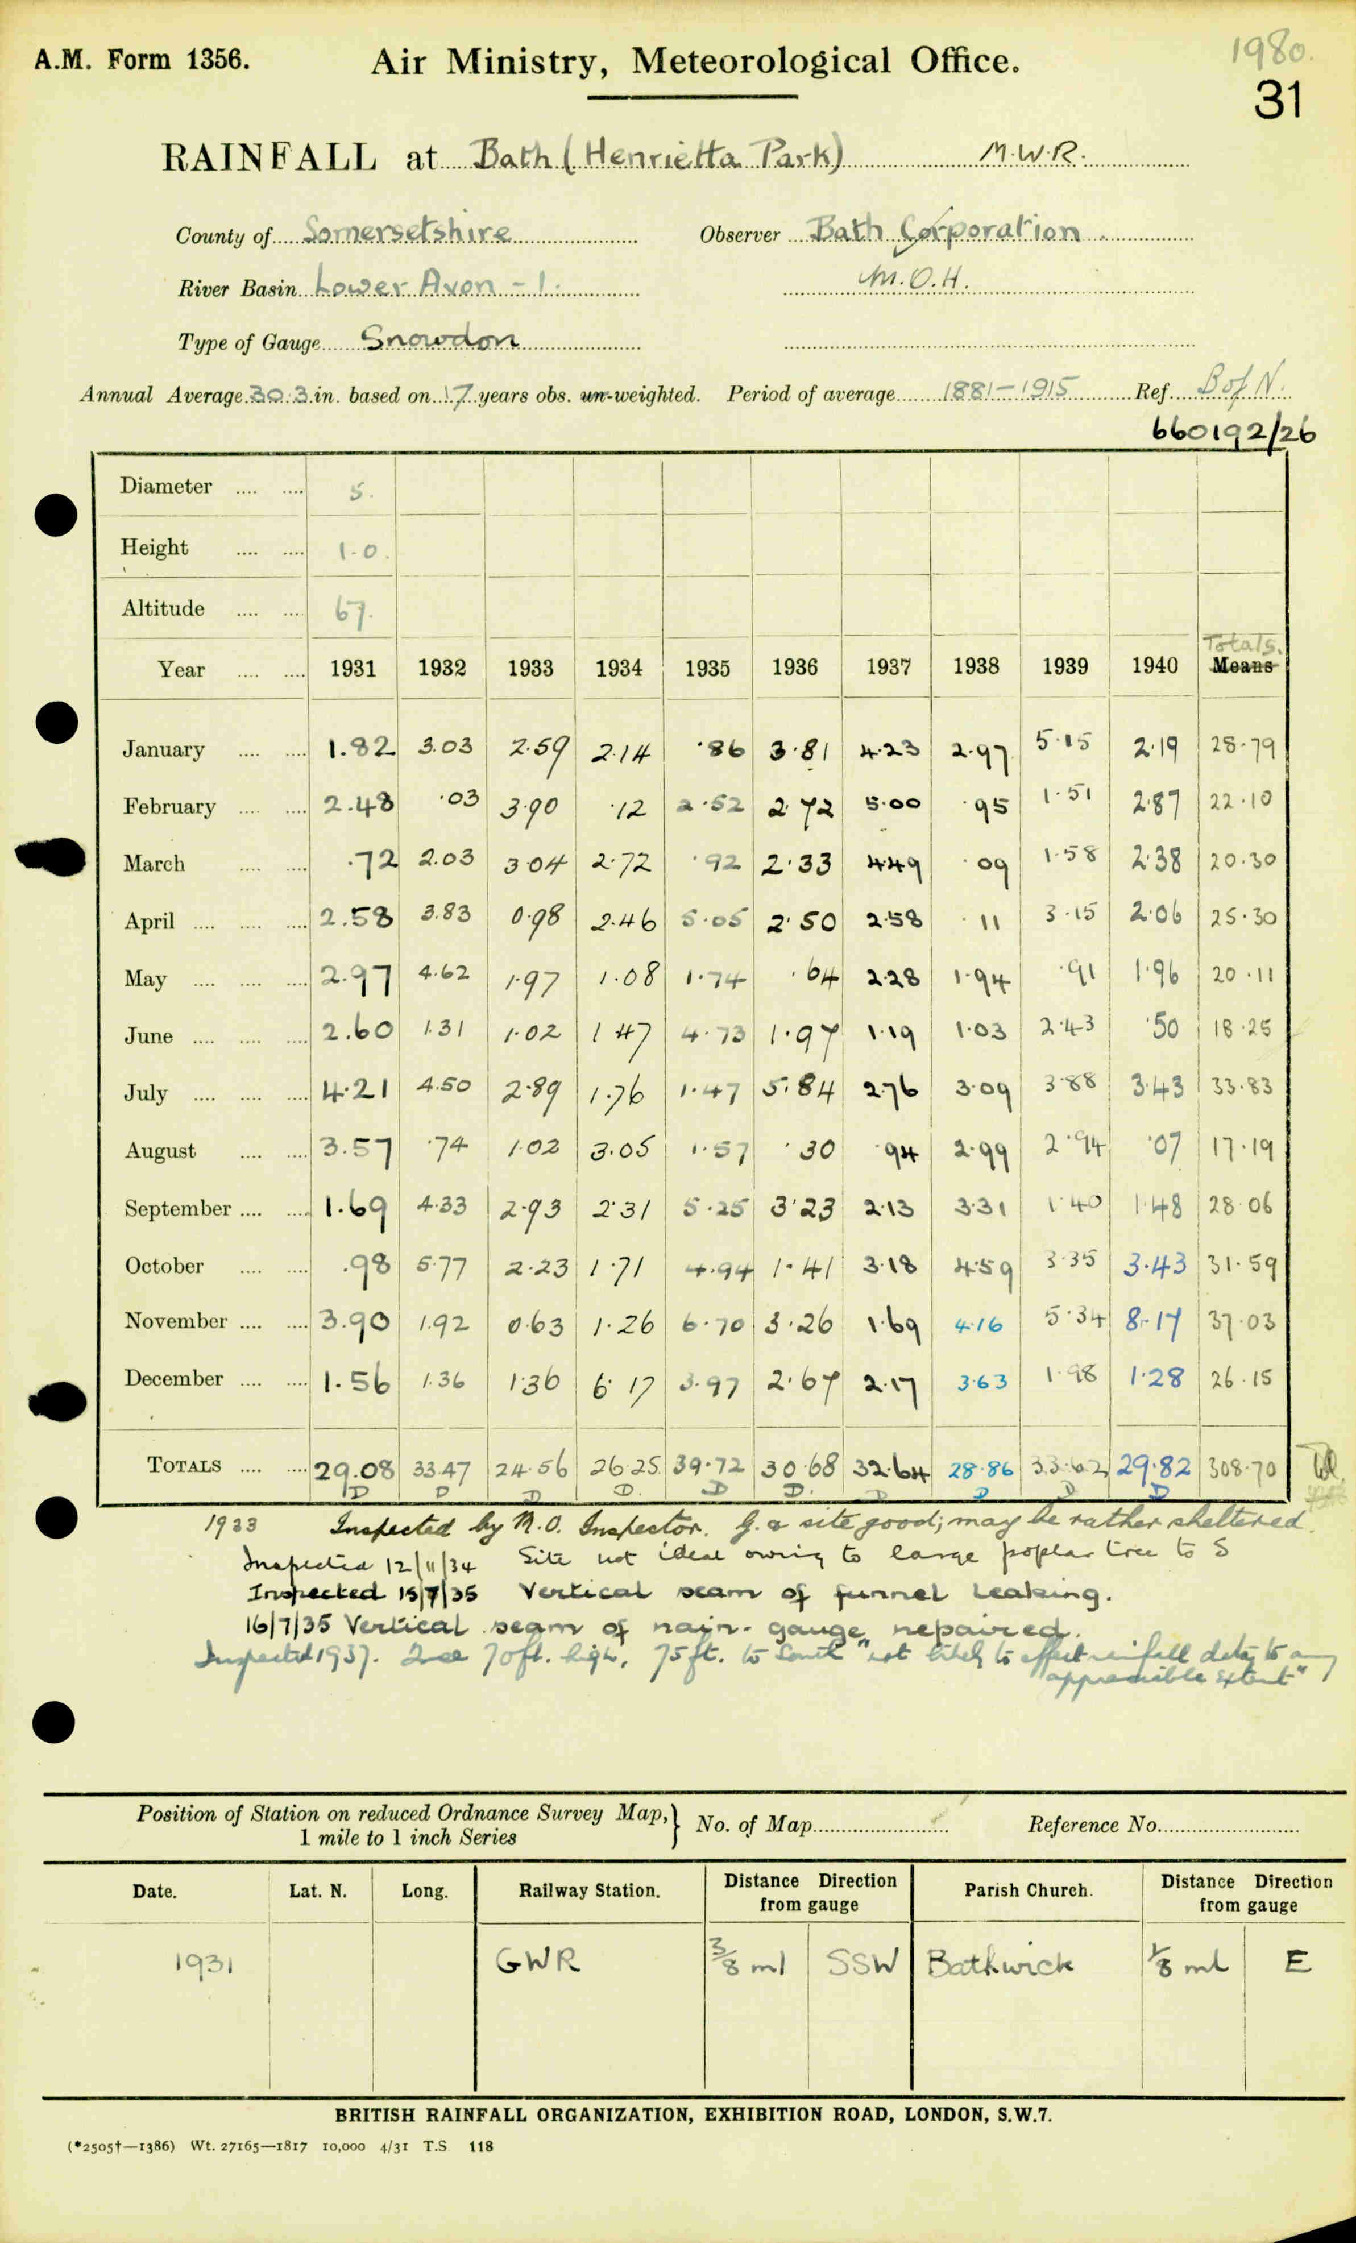 1980.
A.M. Form 1356. Air Ministry, Meteorological Office.
31
RAINFALL at Bath (Henrietta Park) M.W.R.
County of Somersetshire Observer Bath Corporation
River Basin Lower Avon - 1. M.O.H.
Type of Gauge Snowdon
Annual Average 30.3 in. based on 17 years obs. un-weighted. Period of average 1881-1915 Ref. B of N.
660192/26
Diameter .... .... 5.
Height .... .... 1.0.
Altitude .... .... 67.
Totals.
Year .... .... 1931 1932 1933 1934 1935 1936 1937 1938 1939 1940 Means
January .... .... 1.82 3.03 2.59 2.14 .86 3.81 4.23 2.97 5.15 2.19 28.79
February .... .... 2.48 .03 3.90 .12 2.52 2.72 5.00 .95 1.51 2.87 22.10
March .... .... .72 2.03 3.04 2.72 .92 2.33 4.49 .09 1.58 2.38 20.30
April .... .... .... 2.58 3.83 0.98 2.46 5.05 2.50 2.58 .11 3.15 2.06 25.30
May .... .... .... 2.97 4.62 1.97 1.08 1.74 .64 2.28 1.94 .91 1.96 20.11
June .... .... .... 2.60 1.31 1.02 1.47 4.73 1.97 1.19 1.03 2.43 .50 18.25
July .... .... .... 4.21 4.50 2.89 1.76 1.47 5.84 2.76 3.09 3.88 3.43 33.83
August .... .... 3.57 .74 1.02 3.05 1.57 .30 .94 2.99 2.94 .07 17.19
September .... .... 1.69 4.33 2.93 2.31 5.25 3.23 2.13 3.31 1.40 1.48 28.06
October .... .... .98 5.77 2.23 1.71 4.94 1.41 3.18 4.59 3.35 3.43 31.59
November .... .... 3.90 1.92 0.63 1.26 6.70 3.26 1.69 4.16 5.34 8.17 37.03
December .... .... 1.56 1.36 1.36 6.17 3.97 2.67 2.17 3.63 1.98 1.28 26.15
TOTALS .... .... 29.08 33.47 24.56 26.25 39.72 30.68 32.64 28.86 33.62 29.82 308.70
D D D D. D D. D D D D
1933 Inspected by M.O. Inspector. G. & site good; may be rather sheltered.
Inspected 12/11/34 Site not ideal owing to large poplar tree to S
Inspected 15/7/35 Vertical seam of funnel leaking.
16/7/35 Vertical seam of rain-gauge repaired.
Inspected 1937. Tree 70ft. high, 75ft. to South "not likely to affect rainfall data to any
appreciable extent"
Position of Station on reduced Ordnance Survey Map,} No. of Map Reference No.
1 mile to 1 inch Series
Date. Lat. N. Long. Railway Station. Distance Direction from gauge Parish Church. Distance Direction from gauge
1931 GWR 3/8 ml SSW Bathwick 1/8 ml E
BRITISH RAINFALL ORGANIZATION, EXHIBITION ROAD, LONDON, S.W.7.
(*2505†—1386) Wt. 27165—1817 10,000 4/31 T.S. 118